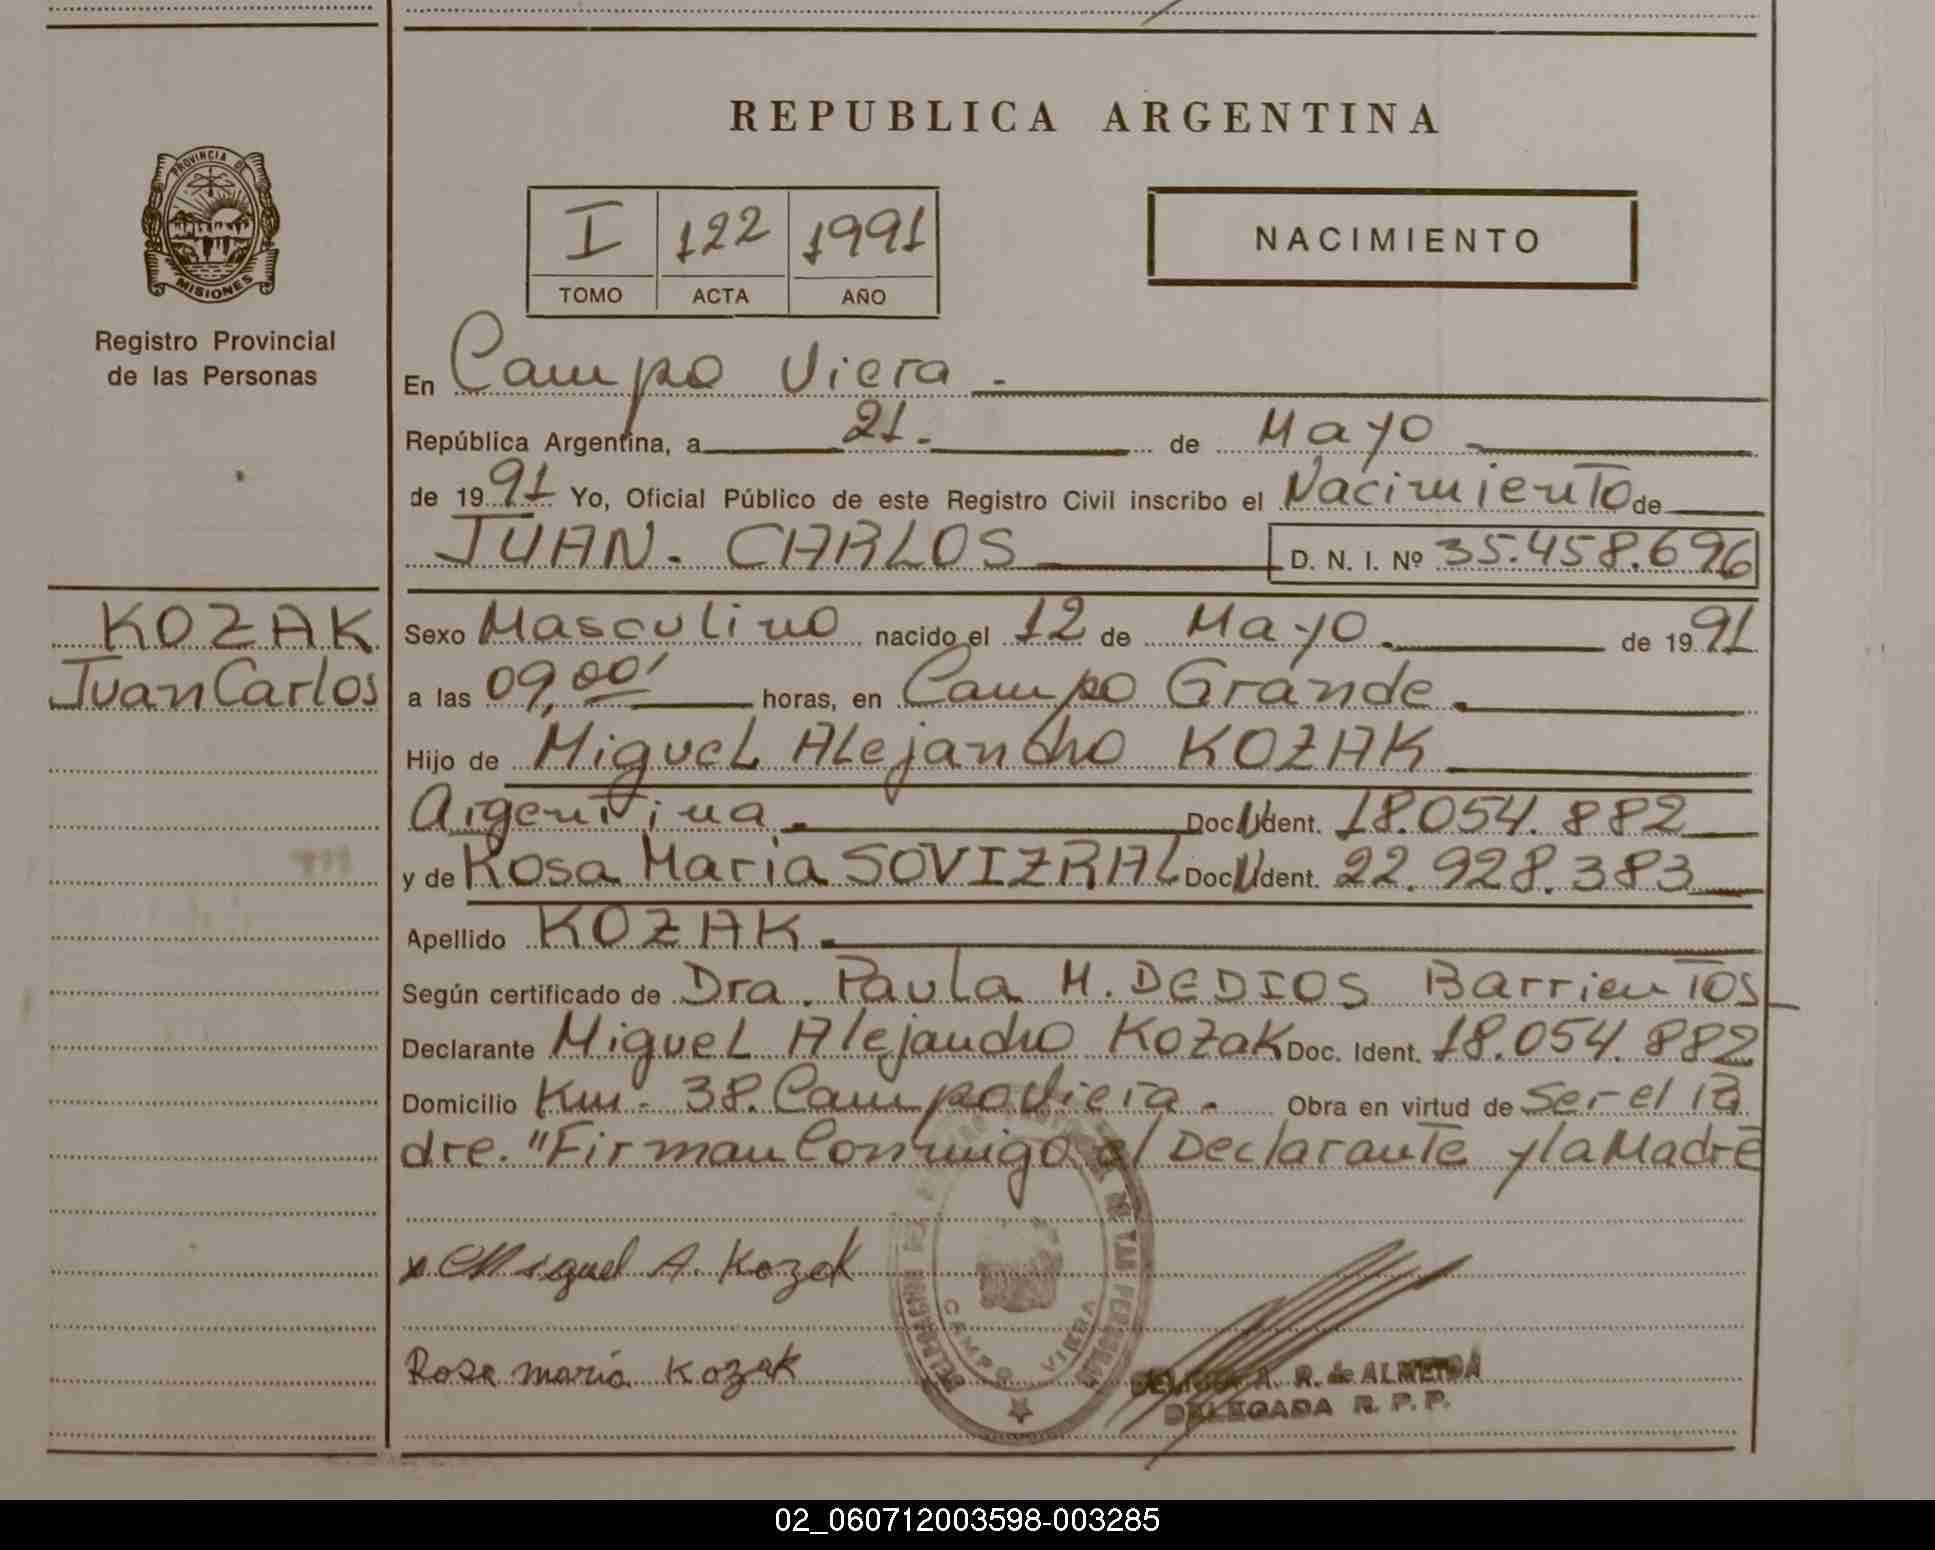 REPUBLICA ARGENTINA
PROVINCIA DE
MISIONES
Registro Provincial
de las Personas
I 122 1991
TOMO ACTA AÑO
NACIMIENTO
En Campo Viera.
República Argentina, a 21. de Mayo
de 1991 Yo, Oficial Público de este Registro Civil inscribo el Nacimiento de
JUAN. CARLOS D. N. I. Nº 35.458.696
KOZAK
Juan Carlos
Sexo Masculino nacido el 12 de Mayo. de 1991
a las 09,00' horas, en Campo Grande.
Hijo de Miguel Alejandro KOZAK
Argentina. Doc. Ident. 18.054.882
y de Rosa Maria SOVIZRAL Doc. Ident. 22.928.383
Apellido KOZAK.
Según certificado de Dra. Paula M. DEDIOS Barrientos
Declarante Miguel Alejandro Kozak Doc. Ident. 18.054.882
Domicilio Km. 38. Campo Viera. Obra en virtud de ser el Pa
dre. "Firman Conmigo el Declarante y la Madre
x Miguel A. Kozak
Rosa maria Kozak
CAMPO VIERA
A. R. de ALMEIDA
DELEGADA R. P. P.
02_060712003598-003285